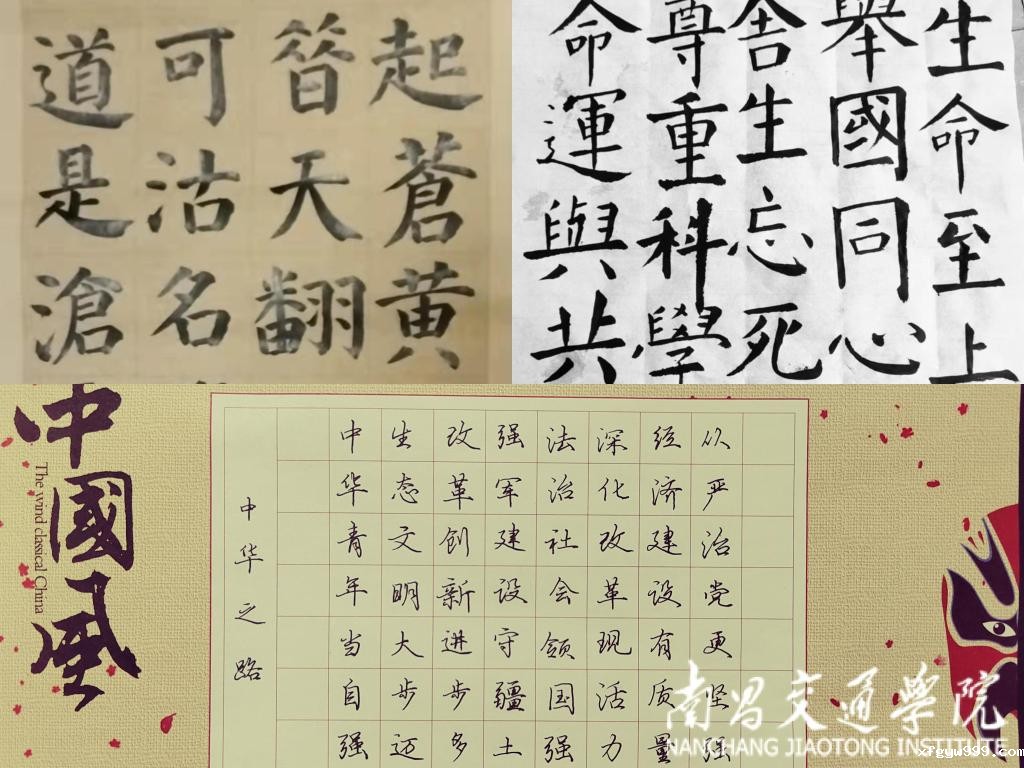 起蒼黄
昔天翻
可沽名
道是滄
生命至上
舉國同心
舍生忘死
尊重科學
命運與共
中國風
The wind classical China
中华之路
中华青年当自强
生态文明大步迈
改革创新进步多
强军建设守疆土
法治社会领国强
深化改革现活力
经济建设有质量
从严治党更坚强
南昌交通學院
NANCHANG JIAOTONG INSTITUTE